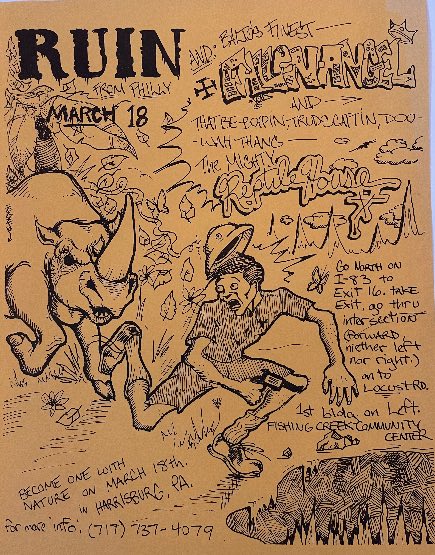 RUIN
FROM PHILLY
MARCH 18
AND: BALTO'S FINEST
FALLEN ANGEL
AND
THAT BE-BOPIN,
WAH-THANG
THE MIGHTY
Reptile House
GO NORTH ON
I-83 to
Exit 16. take
Exit. go thru
intersection
(forward,
niether left
nor right.)
on to
Locust RD.
1st bldg on Left.
FISHING CREEK COMMUNITY
CENTER
BECOME ONE WITH
NATURE ON MARCH 18th.
in HARRISBURG, PA.
for more 'info': (717) 737-4079